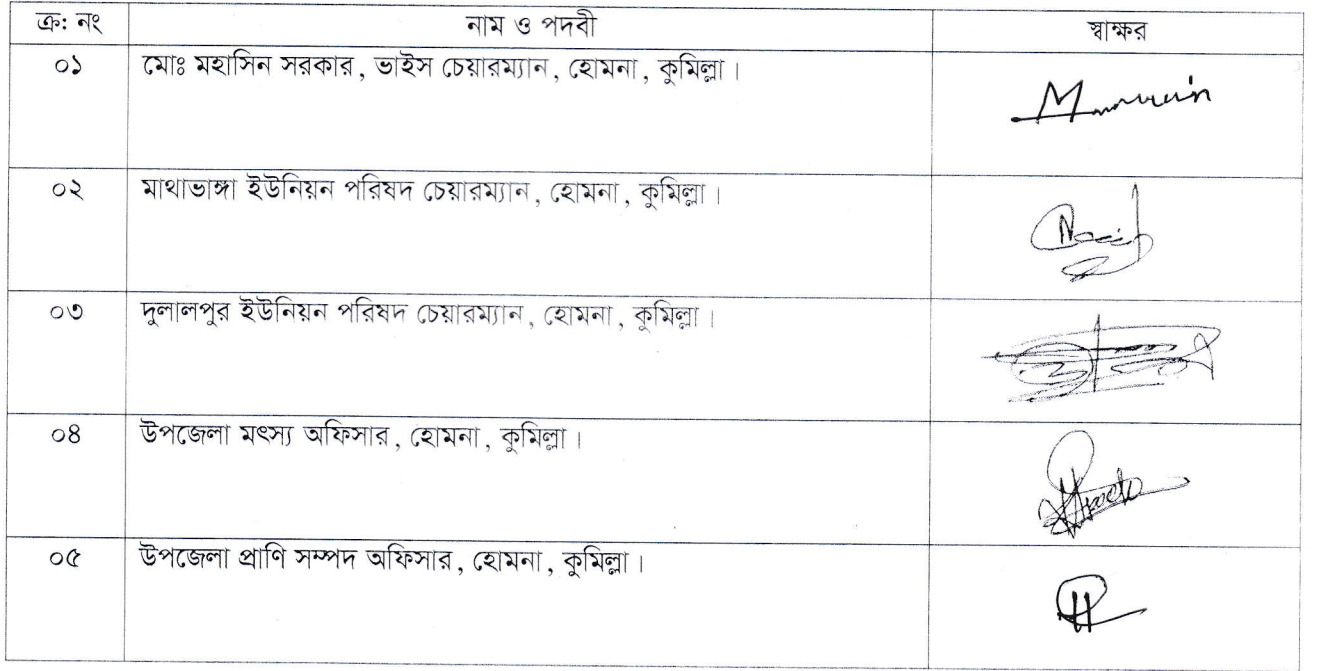 ক্র: নং নাম ও পদবী স্বাক্ষর
০১ মোঃ মহাসিন সরকার, ভাইস চেয়ারম্যান, হোমনা, কুমিল্লা।
০২ মাথাভাঙ্গা ইউনিয়ন পরিষদ চেয়ারম্যান, হোমনা, কুমিল্লা।
০৩ দুলালপুর ইউনিয়ন পরিষদ চেয়ারম্যান, হোমনা, কুমিল্লা।
০৪ উপজেলা মৎস্য অফিসার, হোমনা, কুমিল্লা।
০৫ উপজেলা প্রাণি সম্পদ অফিসার, হোমনা, কুমিল্লা।